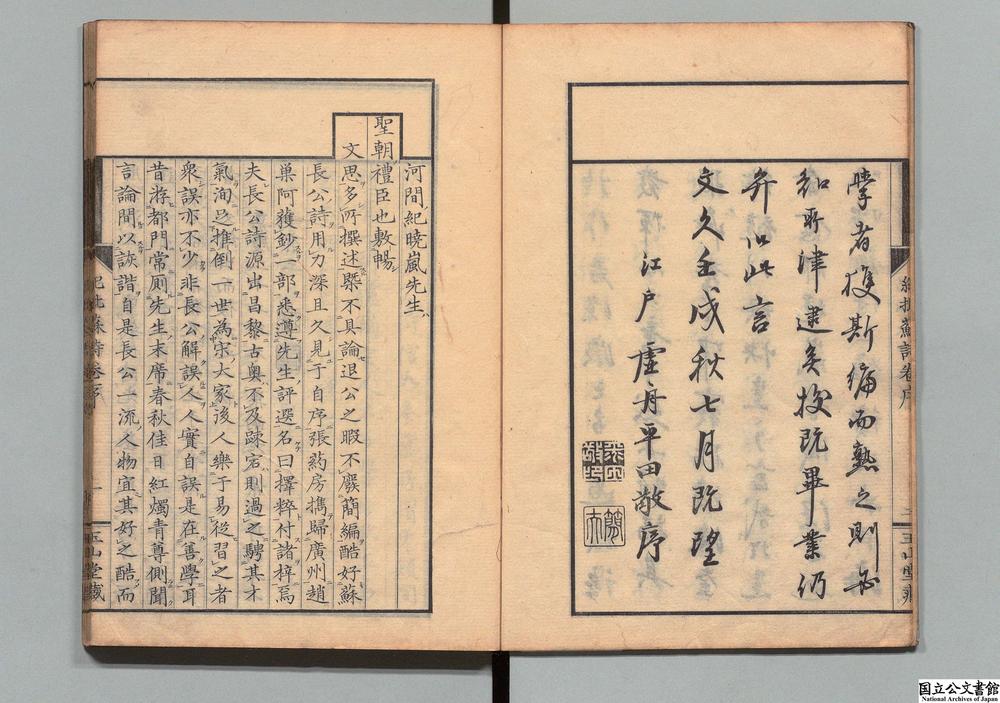 學者獲斯編而熟之則
知所津逮矣校既畢業仍
弁以此言
文久壬戌秋七月既望
江戶 虛舟平田敬序
玉山堂藏
河間紀曉嵐先生
聖朝禮臣也敷暢
文思多所撰述槩不具論退公之暇不廢簡編酷好蘇
長公詩用力深且久見于自序張葯房擕歸廣州趙
巢阿獲鈔一部悉遵先生評選名曰擇粹付諸梓焉
夫長公詩源出昌黎古奥不及疎宕則過之騁其才
氣洵足推倒一世為宋大家後人樂于易從習之者
衆誤亦不少非長公解誤人人實自誤是在善學耳
昔游都門常厠先生末席春秋佳日紅燭青尊側聞
言論間以詼諧自是長公一流人物宜其好之酷而
一
玉山堂藏
国立公文書館
National Archives of Japan